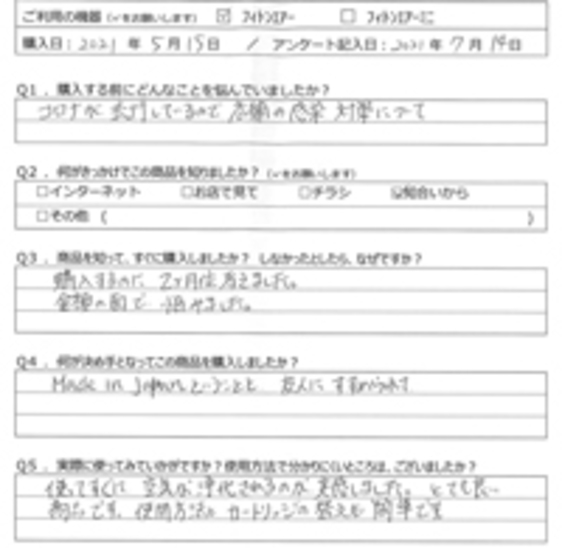 ご利用の機器（✓をお願いします） ☑ フィトンエアー ☐ フィトンエアーミニ
購入日：2021 年 5月15日 / アンケート記入日：2021年 7月14日
Q1．購入する前にどんなことを悩んでいましたか？
コロナが 流行しているので 店舗の感染 対策について
Q2．何がきっかけでこの商品を知りましたか？（✓をお願いします）
☐インターネット ☐お店で見て ☐チラシ ☑知合いから
☐その他（ ）
Q3．商品を知って、すぐに購入しましたか？ しなかったとしたら、なぜですか？
購入するのに 2ヶ月位考えました。
金額の面で 悩みました。
Q4．何が決め手となってこの商品を購入しましたか？
Made in Japanということと 友人に すすめられて
Q5．実際に使ってみていかがですか？使用方法で分かりにくいところは、ございましたか？
使ってすぐに 空気が浄化されるのが 実感しました。とても良い
商品です。使用方法も カートリッジの替えも 簡単です